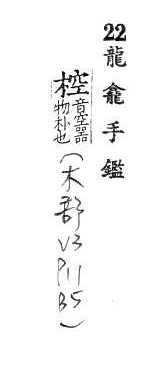 22龍龕手鑑
椌音空器物朴也(木部V3P11B5)